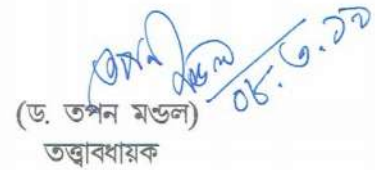 তপন মন্ডল
০৮.৩.১১
(ড. তপন মণ্ডল)
তত্ত্বাবধায়ক